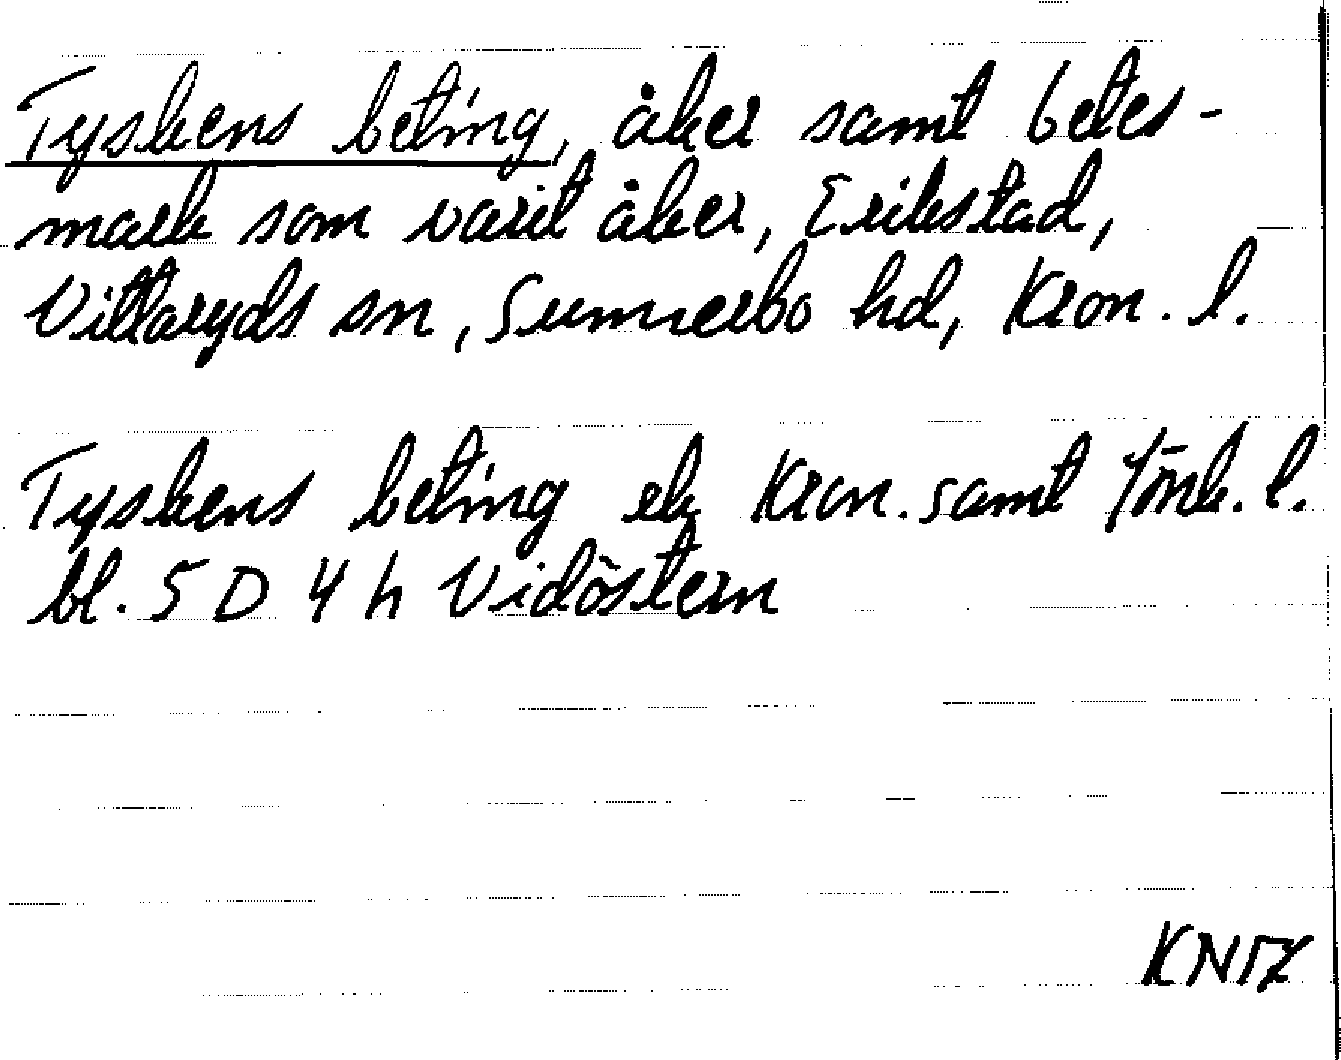 Tyskens beting, åker samt betes-
mark som varit åker, Erikstad,
Vittaryds sn, Sunnerbo hd, Kron. l.
Tyskens beting ek Kron. samt Jönk. l.
bl. 5 D 4 h Vidöstern